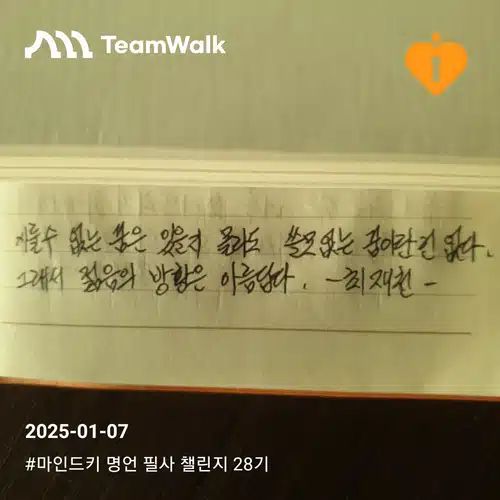 TeamWalk
이룰수 없는 꿈은 있을지 몰라도 쓸모없는 꿈이란 건 없다.
그래서 젊음의 방황은 아름답다. -최재천-
2025-01-07
#마인드키 명언 필사 챌린지 28기